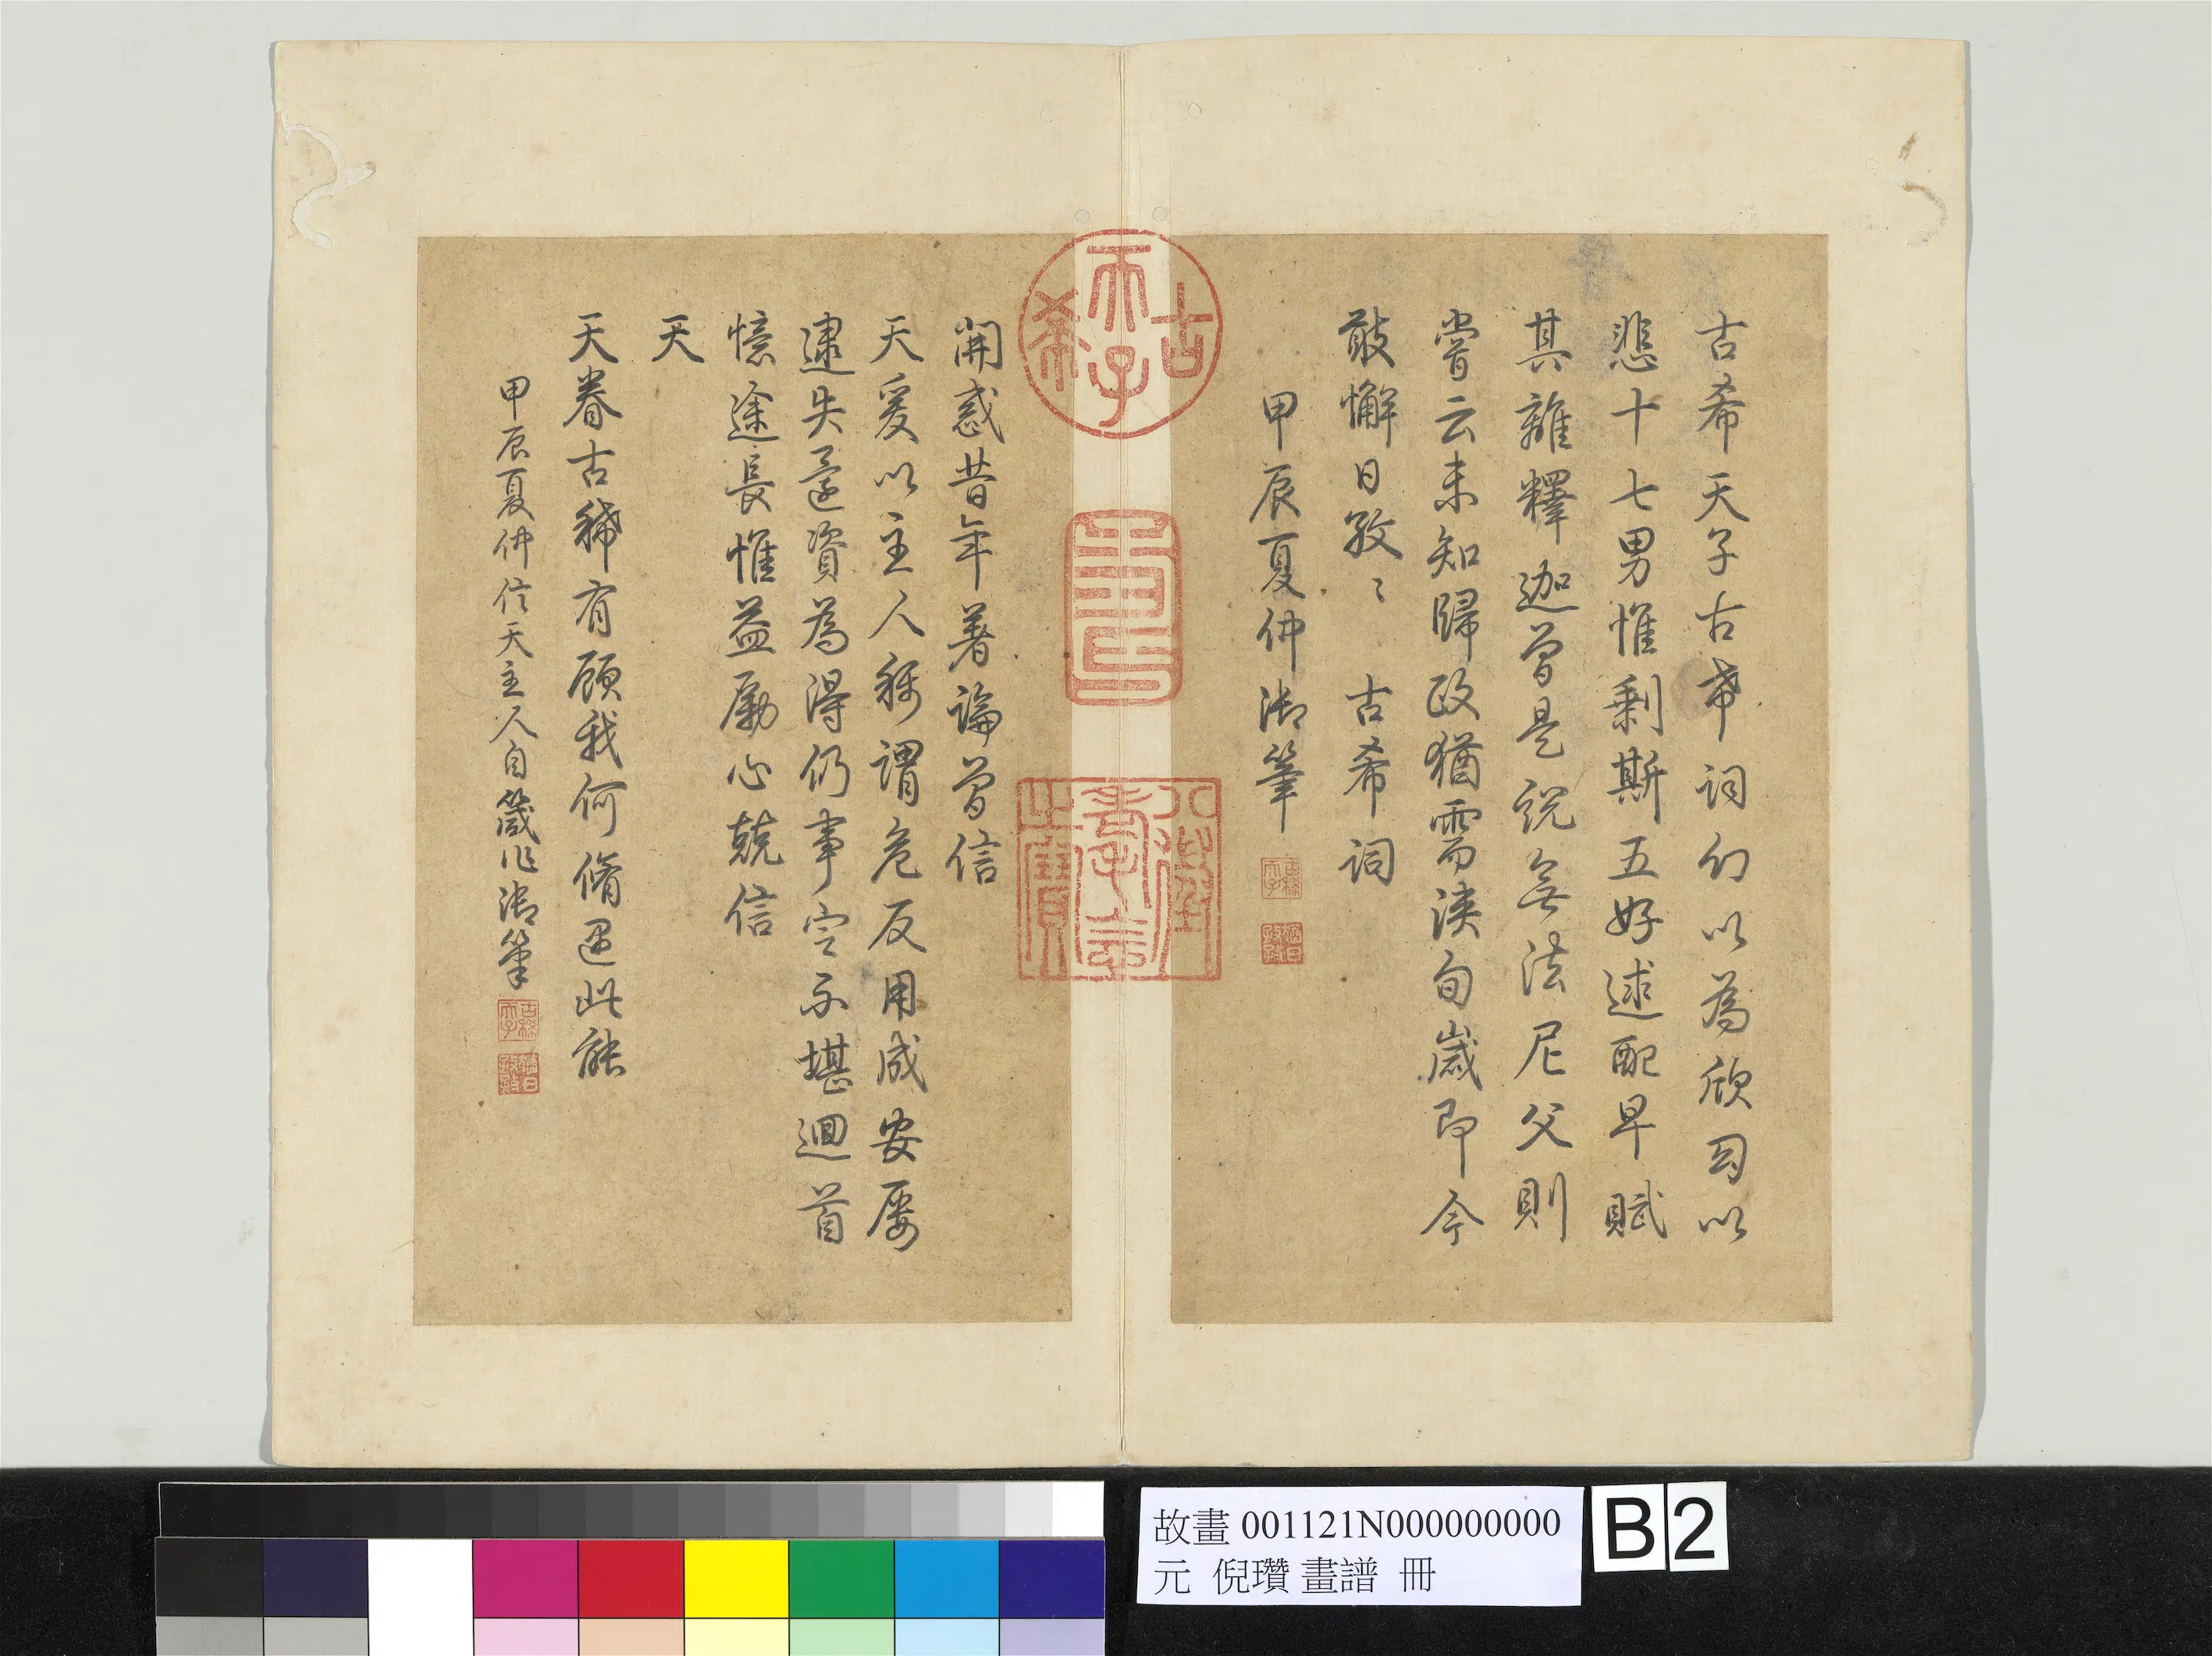 古希天子古希詞幻以為欣曷以
悲十七男惟剩斯五好逑配早賦
其離釋迦曾是說無法尼父則
嘗云未知歸政猶需浹旬歲即今
敢懈日孜〻 古希詞
甲辰夏仲御筆
古稀天子
猶日孜孜
古希天子
壽
八徵耄念之寶
開惑昔年著論曾信
天爰以主人稱謂危反用成安屢
逮失還資為得仍事定不堪迴首
憶途長惟益勵心兢信
天
天眷古稀有顧我何脩遇此能
甲辰夏仲信天主人自箴作御筆
古稀天子
猶日孜孜
故畫 001121N000000000
元 倪瓚 畫譜 冊
B 2